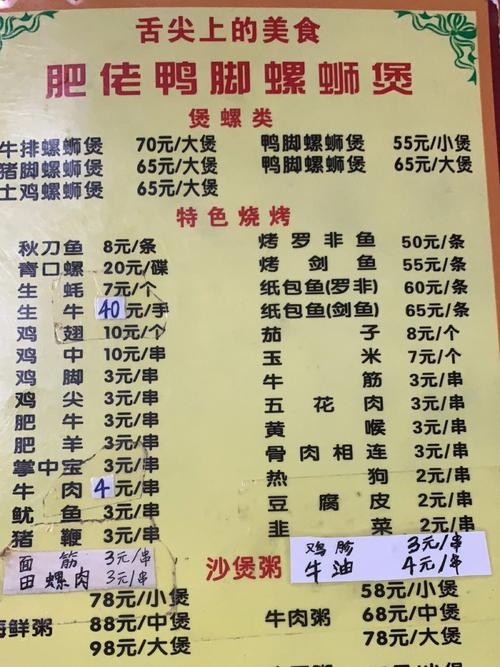 舌尖上的美食
肥佬鸭脚螺蛳煲
煲螺类
牛排螺蛳煲 70元/大煲 鸭脚螺蛳煲 55元/小煲
猪脚螺蛳煲 65元/大煲 鸭脚螺蛳煲 65元/大煲
土鸡螺蛳煲 65元/大煲
特色烧烤
秋刀鱼 8元/条 烤罗非鱼 50元/条
青口螺 20元/碟 烤剑鱼 55元/条
生蚝 7元/个 纸包鱼(罗非) 60元/条
生牛 40元/手 纸包鱼(剑鱼) 65元/条
鸡翅 10元/个 茄子 8元/个
鸡中 10元/串 玉米 7元/个
鸡脚 3元/串 牛筋 3元/串
鸡尖 3元/串 五花肉 3元/串
肥牛 3元/串 黄喉 3元/串
肥羊 3元/串 骨肉相连 3元/串
掌中宝 3元/串 热狗 2元/串
牛肉 4元/串 豆腐皮 2元/串
鱿鱼 3元/串 韭菜 2元/串
猪鞭 3元/串 鸡胗 3元/串
面筋 3元/串 牛油 4元/串
田螺肉 3元/串
沙煲粥
78元/小煲 58元/小煲
海鲜粥 88元/中煲 牛肉粥 68元/中煲
98元/大煲 78元/大煲